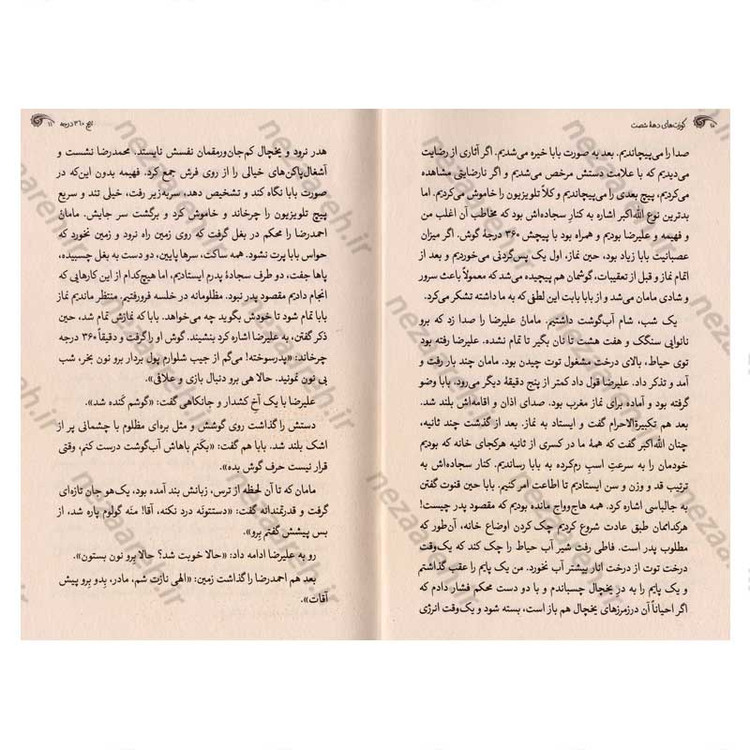 ۱۰ کوزت‌های دههٔ شصت
صدا را می‌پیچاندیم. بعد به صورت بابا خیره می‌شدیم. اگر آثاری از رضایت
می‌دیدیم که با علامت دستش مرخص می‌شدیم و اگر نارضایتی مشاهده
می‌کردیم، پیچ بعدی را می‌پیچاندیم و کلاً تلویزیون را خاموش می‌کردیم. اما
بدترین نوع الله‌اکبر اشاره به کنار سجاده‌اش بود که مخاطب آن اغلب من
و فهیمه و علیرضا بودیم و همراه بود با پیچش ۳۶۰ درجهٔ گوش. اگر میزان
عصبانیت بابا زیاد بود، حین نماز، اول یک پس‌گردنی می‌خوردیم و بعد از
اتمام نماز و قبل از تعقیبات، گوشمان هم پیچیده می‌شد که معمولاً باعث سرور
و شادی مامان می‌شد و از بابا بابت این لطفی که به ما داشته تشکر می‌کرد.
یک شب، شام آب‌گوشت داشتیم. مامان علیرضا را صدا زد که برو
نانوایی سنگک و هفت هشت تا نان بگیر تا تمام نشده. علیرضا رفته بود
توی حیاط، بالای درخت مشغول توت چیدن بود. مامان چند بار رفت و
آمد و تذکر داد. علیرضا قول داد کمتر از پنج دقیقهٔ دیگر می‌رود. بابا وضو
گرفته بود و آماده برای نماز مغرب بود. صدای اذان و اقامه‌اش بلند شد.
بعد هم تکبیرةالاحرام گفت و ایستاد به نماز. بعد از گذشت چند ثانیه،
چنان الله‌اکبر گفت که همهٔ ما در کسری از ثانیه هرکجای خانه که بودیم
خودمان را به سرعتِ اسبِ رم‌کرده به بابا رساندیم. کنار سجاده‌اش به
ترتیب قد و وزن و سن ایستادیم تا اطاعت امر کنیم. بابا حین قنوت گفتن
به جالباسی اشاره کرد. همه هاج‌وواج مانده بودیم که مقصود پدر چیست!
هرکداممان طبق عادت شروع کردیم چک کردن اوضاع خانه، آن‌طور که
مطلوب پدر است. فاطی رفت شیر آب حیاط را چک کند که یک‌وقت
درخت توت از درخت انار بیشتر آب نخورد. من یک پایم را عقب گذاشتم
و یک پایم را به درِ یخچال چسباندم و با دو دست محکم فشار دادم که
اگر احیاناً آن درزمرزهای یخچال هم باز است، بسته شود و یک‌وقت انرژی
پیچ ۳۶۰ درجه ۱۱
هدر نرود و یخچال کم‌جان‌ورمقمان نفسش نایستد. محمدرضا نشست و
آشغال‌پاکن‌های خیالی را از روی فرش جمع کرد. فهیمه بدون این‌که در
صورت بابا نگاه کند و تشخیص دهد، سربه‌زیر رفت، خیلی تند و سریع
پیچ تلویزیون را چرخاند و خاموش کرد و برگشت سر جایش. مامان
احمدرضا را محکم در بغل گرفت که روی زمین راه نرود و زمین نخورد که
حواس بابا پرت نشود. همه ساکت، سرها پایین، دو دست به بغل چسبیده،
پاها جفت، دو طرف سجادهٔ پدرم ایستادیم، اما هیچ‌کدام از این کارهایی که
انجام دادیم مقصود پدر نبود. مظلومانه در خلسه فرورفتیم. منتظر ماندیم نماز
بابا تمام شود تا خودش بگوید چه می‌خواهد. بابا که نمازش تمام شد، حین
ذکر گفتن، به علیرضا اشاره کرد بنشیند. گوش او را گرفت و دقیقاً ۳۶۰ درجه
چرخاند: «پدرسوخته! می‌گم از جیب شلوارم پول بردار برو نون بخر، شب
بی نون نمونید. حالا هی برو دنبال بازی و علافی».
علیرضا با یک آخِ کشدار و جانکاهی گفت: «گوشم کَنده شد».
دستش را گذاشت روی گوشش و مثل بره‌ای مظلوم با چشمانی پر از
اشک بلند شد. بابا هم گفت: «بکَنم باهاش آب‌گوشت درست کنم، وقتی
قرار نیست حرف گوش بده».
مامان که تا آن لحظه از ترس، زبانش بند آمده بود، یک‌هو جان تازه‌ای
گرفت و قدرتمندانه گفت: «دستتونه درد نکنه، آقا! منَه گولوم پاره شد، از
بس پیشش گفتم بِرو».
رو به علیرضا ادامه داد: «حالا خوبت شد؟ حالا بِرو نون بستون».
بعد هم احمدرضا را گذاشت زمین: «الهی نازت شم، مادر، بِدو بِرو پیش
آقات».
nezaareh.ir